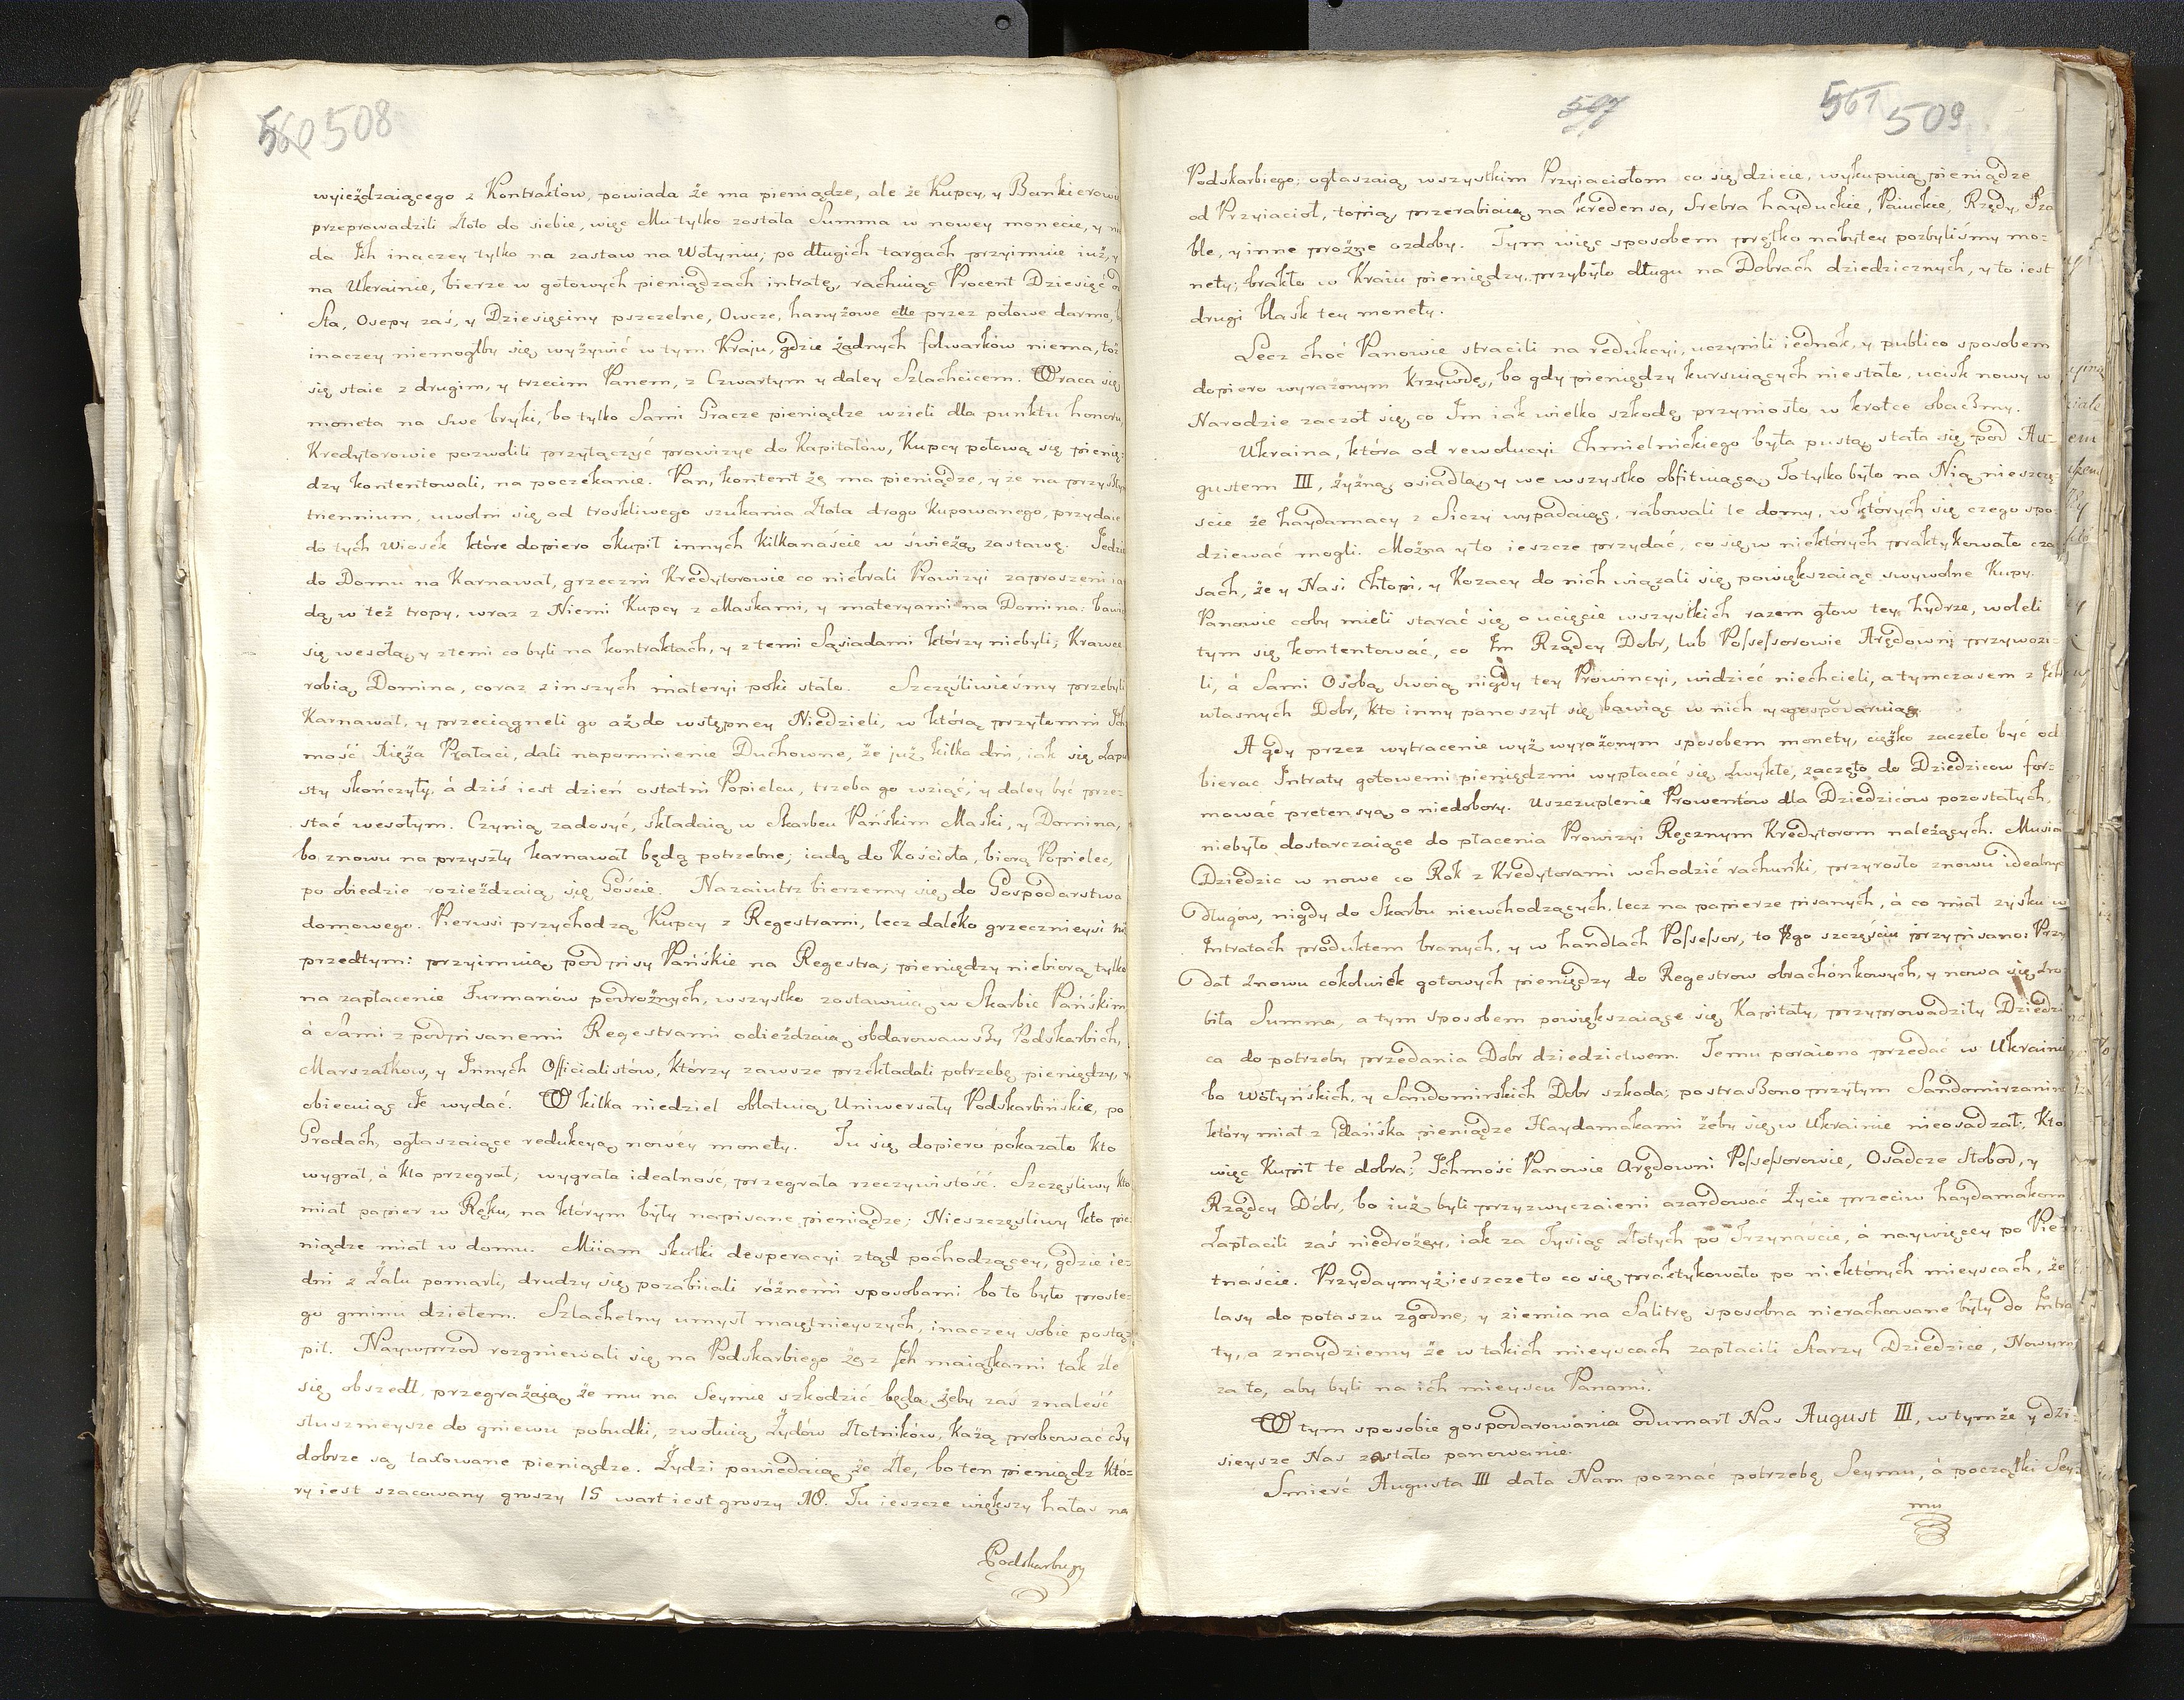 560 508
wyieżdzaiącego z Kontraktow, powiada że ma pieniądze, ale że Kupcy, y Bankierowie
przeprowadzili Złoto do siebie, więc Mu tylko została Summa w nowey monecie, y
da Ich inaczey tylko na zastaw na Wołyniu; po długich targach przyimuie iuż, y
na Ukrainie, bierze w gotowych pieniądzach intratę, rachuiąc Procent Dziesięć od
Sta, Osepy zaś, y Dziesięciny pszczelne, Owcze, hanyżowe etc przez połowę darmo,
inaczey niemogłby się wyżywić w tym Kraju, gdzie żadnych folwarków niema, toż
się staie z drugim, y trzecim Panem, z Czwartym y daley Szlachcicem. Wraca się
moneta na swe bryki, bo tylko Sami Gracze pieniądze wzieli dla punktu honoru,
Kredytorowie pozwolili przyłączyć prowizye do Kapitałów, Kupcy połową się pienię=
dzy kontentowali, na poczekanie. Pan, kontent że ma pieniądze, y że na przyszłe
triennium, uwolni się od troskliwego szukania Złota drogo Kupowanego, przydaie
do tych Wiosek które dopiero okupił innych kilkanaście w świeżą zastawę. Jedzie
do Domu na Karnawał, grzeczni Kredytorowie co niebrali Prowizyi zaproszeni ia=
dą w też tropy, wraz z Niemi Kupcy z Maskami, y materyami na Domina: bawią
się wesoło, y z temi co byli na kontraktach, y z temi Sąsiadami którzy niebyli; Krawce
robią Domina, coraz z inszych materyi poki stało. Szczęśliwieśmy przebyli
Karnawał, y przeciągneli go aż do wstępney Niedzieli, w którą przytemni Ich
mość Xięża Prałaci, dali napomnienie Duchowne, że już kilka dni, iak się Zapu
sty skończyły, á dziś iest dzień ostatni Popielcu, trzeba go wziąć, y daley być prze=
stać wesołym. Czynią zadosyć, składaią w Skarbcu Pańskim Maski, y Domina,
bo znowu na przyszły karnawał będą potrzebne; iadą do Kościoła, biorą Popielec,
po obiedzie rozieżdzaią się Goście. Nazaiutrz bierzemy się do Gospodarstwa
domowego. Pierwsi przychodzą Kupcy z Regestrami, lecz daleko grzecznieysi niż
przedtym: przyimuią podpisy Pańskie na Regestra; pieniędzy niebiorą tylko
na zapłacenie Furmanów podrożnych, wszystko zostawuią w Skarbie Pańskim
á Sami z podpisanemi Regestrami odieżdzaią obdarowawszy Podskarbich,
Marszałków, y Innych Officialistów, którzy zawsze przekładali potrzebę pieniędzy, y
obiecuiąc Je wydać. W kilka niedziel oblatuią Uniwersały Podskarbińskie, po
Grodach, ogłaszaiące redukcyą nowey monety. Tu się dopiero pokazało kto
wygrał, á kto przegrał; wygrała idealność, przegrała rzeczywistość. Szczęśliwy kto
miał papier w Ręku, na którym były napisane pieniądze; Nieszczęśliwy kto pie=
niądze miał w domu. Miiam skutki desperacyi ztąd pochodzącey, gdzie ie=
dni z Żalu pomarli, drudzy się pozabiiali różnemi sposobami bo to było proste=
go gminu dziełem. Szlachetny umysł maiętnieyszych, inaczey sobie postą=
pił. Naywprzod rozgniewali się na Podskarbiego że z Ich maiątkami tak źle
się obszedł, przegrażaią że mu na Seymie szkodzić będą, żeby zaś znaleść
słusznieysze do gniewu pobudki, zwołuią Żydów Złotników, Każą probować czy
dobrze są taxowane pieniądze. Żydzi powiedaią że źle, bo ten pieniądz Któ=
ry iest szacowany groszy 15 wart iest groszy 18. Tu ieszcze większy hałas na
Podskarbiego
507 561 509
Podskarbiego; ogłaszaią wszystkim Przyiaciołom co się dzieie, wykupuią pieniądze
od Przyiacioł, topią przerabiaią na kredensa, Srebra hayduckie, Paiuckie, Rzędy, Sza
ble, y inne prożne ozdoby. Tym więc sposobem prętko nabytey pozbyliśmy mo=
nety; brakło w Kraiu pieniędzy, przybyło długu na Dobrach dziedzicznych, y to iest
drugi blask tey monety.
Lecz choć Panowie stracili na redukcyi, uczynili iednak, y publico sposobem
dopiero wyrażonym Krzywdę, bo gdy pieniędzy kursuiących niestało, ucisk nowy w
Narodzie zaczoł się, co Im iak wielko szkodę przyniosło w krotce obaczmy.
Ukraina, która od rewolucyi Chmielnickiego była pustą, stała się pod Au=
gustem III, żyżną, osiadłą, y we wszystko obfituiącą, To tylko było na Nią nieszczę=
scie że haydamacy z Siczy wypadaiąc, rabowali te domy, w których się czego spo=
dziewać mogli. Można y to ieszcze przydać, co się w niektórych praktykowało cza
sach, że y Nasi Chłopi, y Kozacy do nich wiązali się powiększaiąc swywolne Kupy.
Panowie coby mieli starać się o ucięcie wszystkich razem głow tey hydrze, woleli
tym się kontentować, co Im Rządcy Dobr, lub Possessorowie Arędowni przywozi=
li, á Sami Osobą Swoią nigdy tey Prowincyi, widzieć niechcieli, a tymczasem z Ich
własnych Dobr, kto inny panoszył się bawiąc w nich y gospodaruiąc.
A gdy przez wytracenie wyż wyrażonym sposobem monety, ciężko zaczeło być od
bierac Intraty gotowemi pieniędzmi wypłacać się Zwykłe, zaczęto do Dziedzicow for=
mować pretensyą o niedobory. Uszczuplenie Prowentów dla Dziedziców pozostałych,
niebyło dostarczaiące do płacenia Prowizyi Ręcznym Kredytorom należących. Musiał
Dziedzic w nowe co Rok z Kredytorami wchodzić rachunki, przyrosło znowu idealnych
długów, nigdy do Skarbu niewchodzących, lecz na papierze pisanych, á co miał zysku w
Intratach produktem branych, y w handlach Possessor, to Jego szczęściu przypisano: Przy
dał Znowu cokolwiek gotowych pieniędzy do Regestrow obrachónkowych, y nowa się Zro
biła Summa, a tym sposobem powiększaiące się Kapitały, przyprowadziły Dziedzi
ca do potrzeby przedania Dobr dziedzictwem. Temu poraiono przedać w Ukrainie
bo Wołyńskich, y Sandomirskich Dobr szkoda; postraszono przytym Sandomirzanina
który miał z Gdańska pieniądze Haydamakami żeby się w Ukrainie nieosadzał. Kto
więc Kupił te dobra? Ichmość Panowie Arędowni Possessorowie, Osadcze Słobod, y
Rządcy Dobr, bo iuż byli przyzwyczaieni azardować Życie przeciw haydamakom
Zapłacili zaś niedrożey, iak za Tysiąc Złotych po Trzynaście, á naywięcey po Pięt=
tnaście. Przydaymyż ieszcze to co się praktykowało po niektórych mieyscach, że
lasy do potaszu zgodne, y ziemia na Salitrę sposobna nierachowane były do Intra
ty, a znaydziemy że w takich mieyscach zapłacili Starzy Dziedzice, Nowym
za to, aby byli na ich mieyscu Panami.
W tym sposobie gospodarowánia odumarł Nas August III, w tymże y dzi=
sieysze Nas zastało panowanie.
Smierć Augusta III dała Nam poznać potrzebę Seymu, á początki Sey=
mu